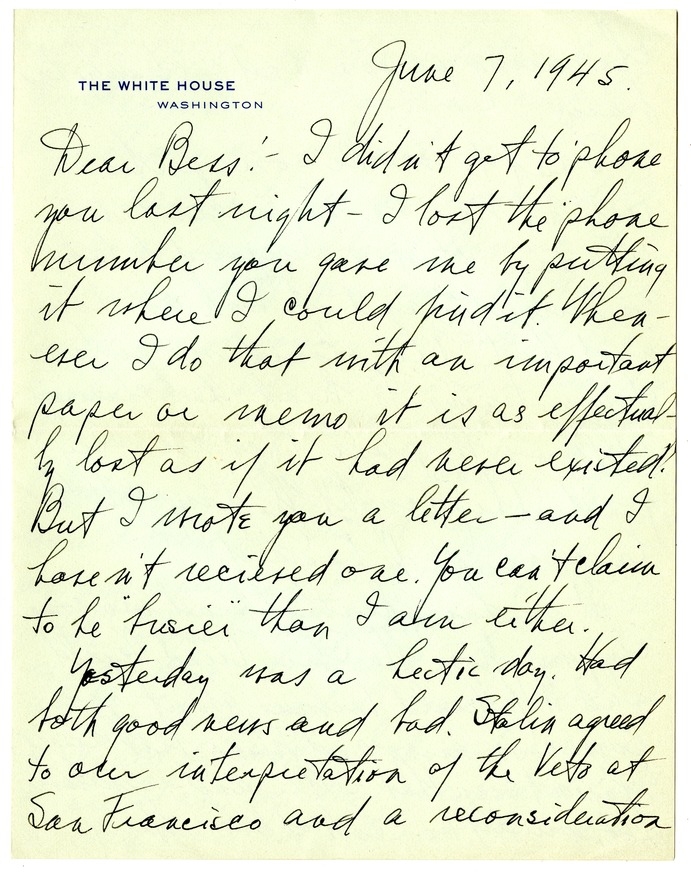 June 7, 1945.
THE WHITE HOUSE
WASHINGTON
Dear Bess:- I didn't get to 'phone
you last night - I lost the 'phone
number you gave me by putting
it where I could find it. When-
ever I do that with an important
paper or memo it is as effectual-
ly lost as if it had never existed!
But I wrote you a letter - and I
haven't recieved one. You can't claim
to be "busier" than I am either.
Yesterday was a hectic day. Had
both good news and bad. Stalin agreed
to our interpretation of the Veto at
San Francisco and a reconsideration